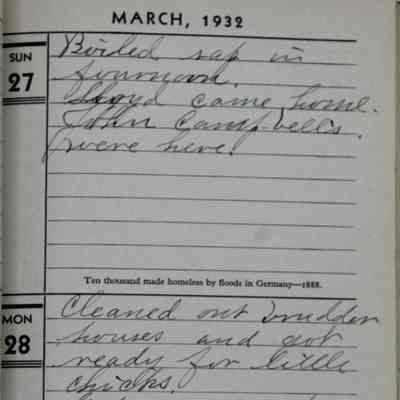 MARCH, 1932
SUN
27
Boiled sap in
fournoon.
Lloyd came home.
John Campbells.
were here.
Ten thousand made homeless by floods in Germany—1888.
MON
28
Cleaned out brudder
houses and got
ready for little
chicks.